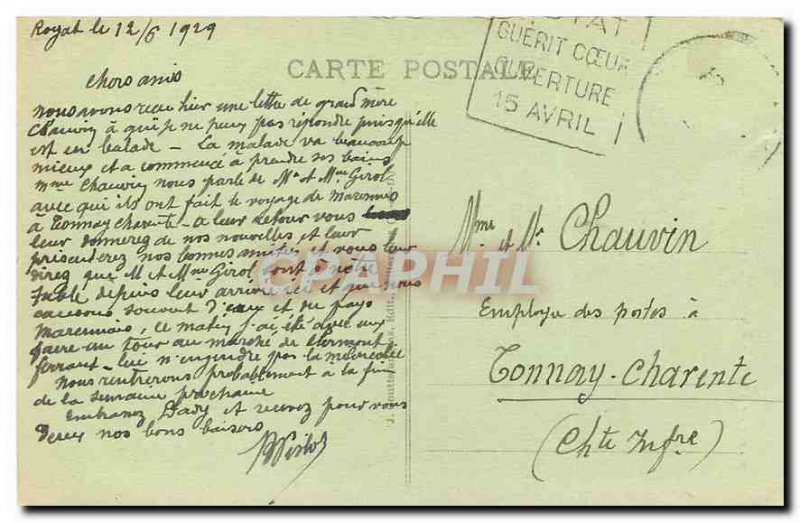 Royat le 12/6 1929
CARTE POSTALE
GUÉRIT CŒUR
OUVERTURE
15 AVRIL
chers amis
nous avons recu hier une lettre de grand mère
Chauvin à qui je ne peux pas répondre puisqu'elle
est en balade - La malade va beaucoup
mieux et a commencé à prendre ses bains
mme Chauvin nous parle de Mr et Mme Girol
avec qui ils ont fait le voyage de marennes
à Tonnay charente - a leur retour vous
leur donnerez de nos nouvelles et leur
présenterez nos bonnes amitiés et vous leur
direz que M et Mme Girol sont à notre
table depuis leur arrivée ici et que nous
causons souvent d'eux et du pays
Marennais, ce matin j'ai été avec eux
faire un tour au marché de clermont
ferrand - lui n'engendre pas la mélancolie
nous rentrerons probablement à la fin
de la semaine prochaine
Embrassez Dady et recevez pour vous
deux nos bons baisers
CPAPHIL
Mme et Mr Chauvin
Employé des postes à
Tonnay-Charente
(Chte Infre)